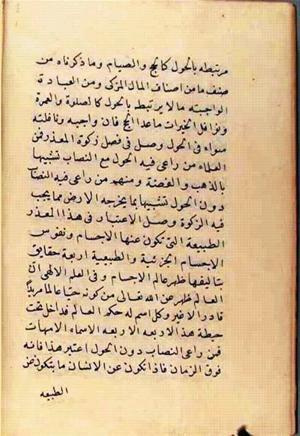 مرتبطه بالحول كالحج والصيام وما ذكرناه من
صنف ما من اصناف المال المزكى ومن العبادة
الواجبة ما لا يرتبط بالحول كالصلوة والعمرة
ونوافل الخيرات ما عدا الحج فان واجبه ونافلته
سواء فى الحول وصل فى فصل زكوة المعدن فمن
العلماء من راعى فيه الحول مع النصاب تشبيها
بالذهب والفضة ومنهم من راعى فيه النصاب
دون الحول تشبيها بما يخرجه الارض مما يجب
فيه الزكوة وصل الاعتبار فى هذا المعدن
الطبيعة التى تكون عنها الاجسام ونفوس
الاجسام الجزئية والطبيعة اربعة حقايق
بتاليفها ظهر عالم الاجسام وفى العلم الالهى ان
العالم ظهر عن الله تعالى من كونه حيا عالما مريدا
قادرا لا غير وكل اسم له حكم العالم فداخل تحت
حيطة هذا الاربعة الاسماء الامهات
فمن راعى النصاب دون الحول اعتبر هذا فانه
فوق الزمان فاذا تكون عن الانسان ما يتكون عن
الطبيعه